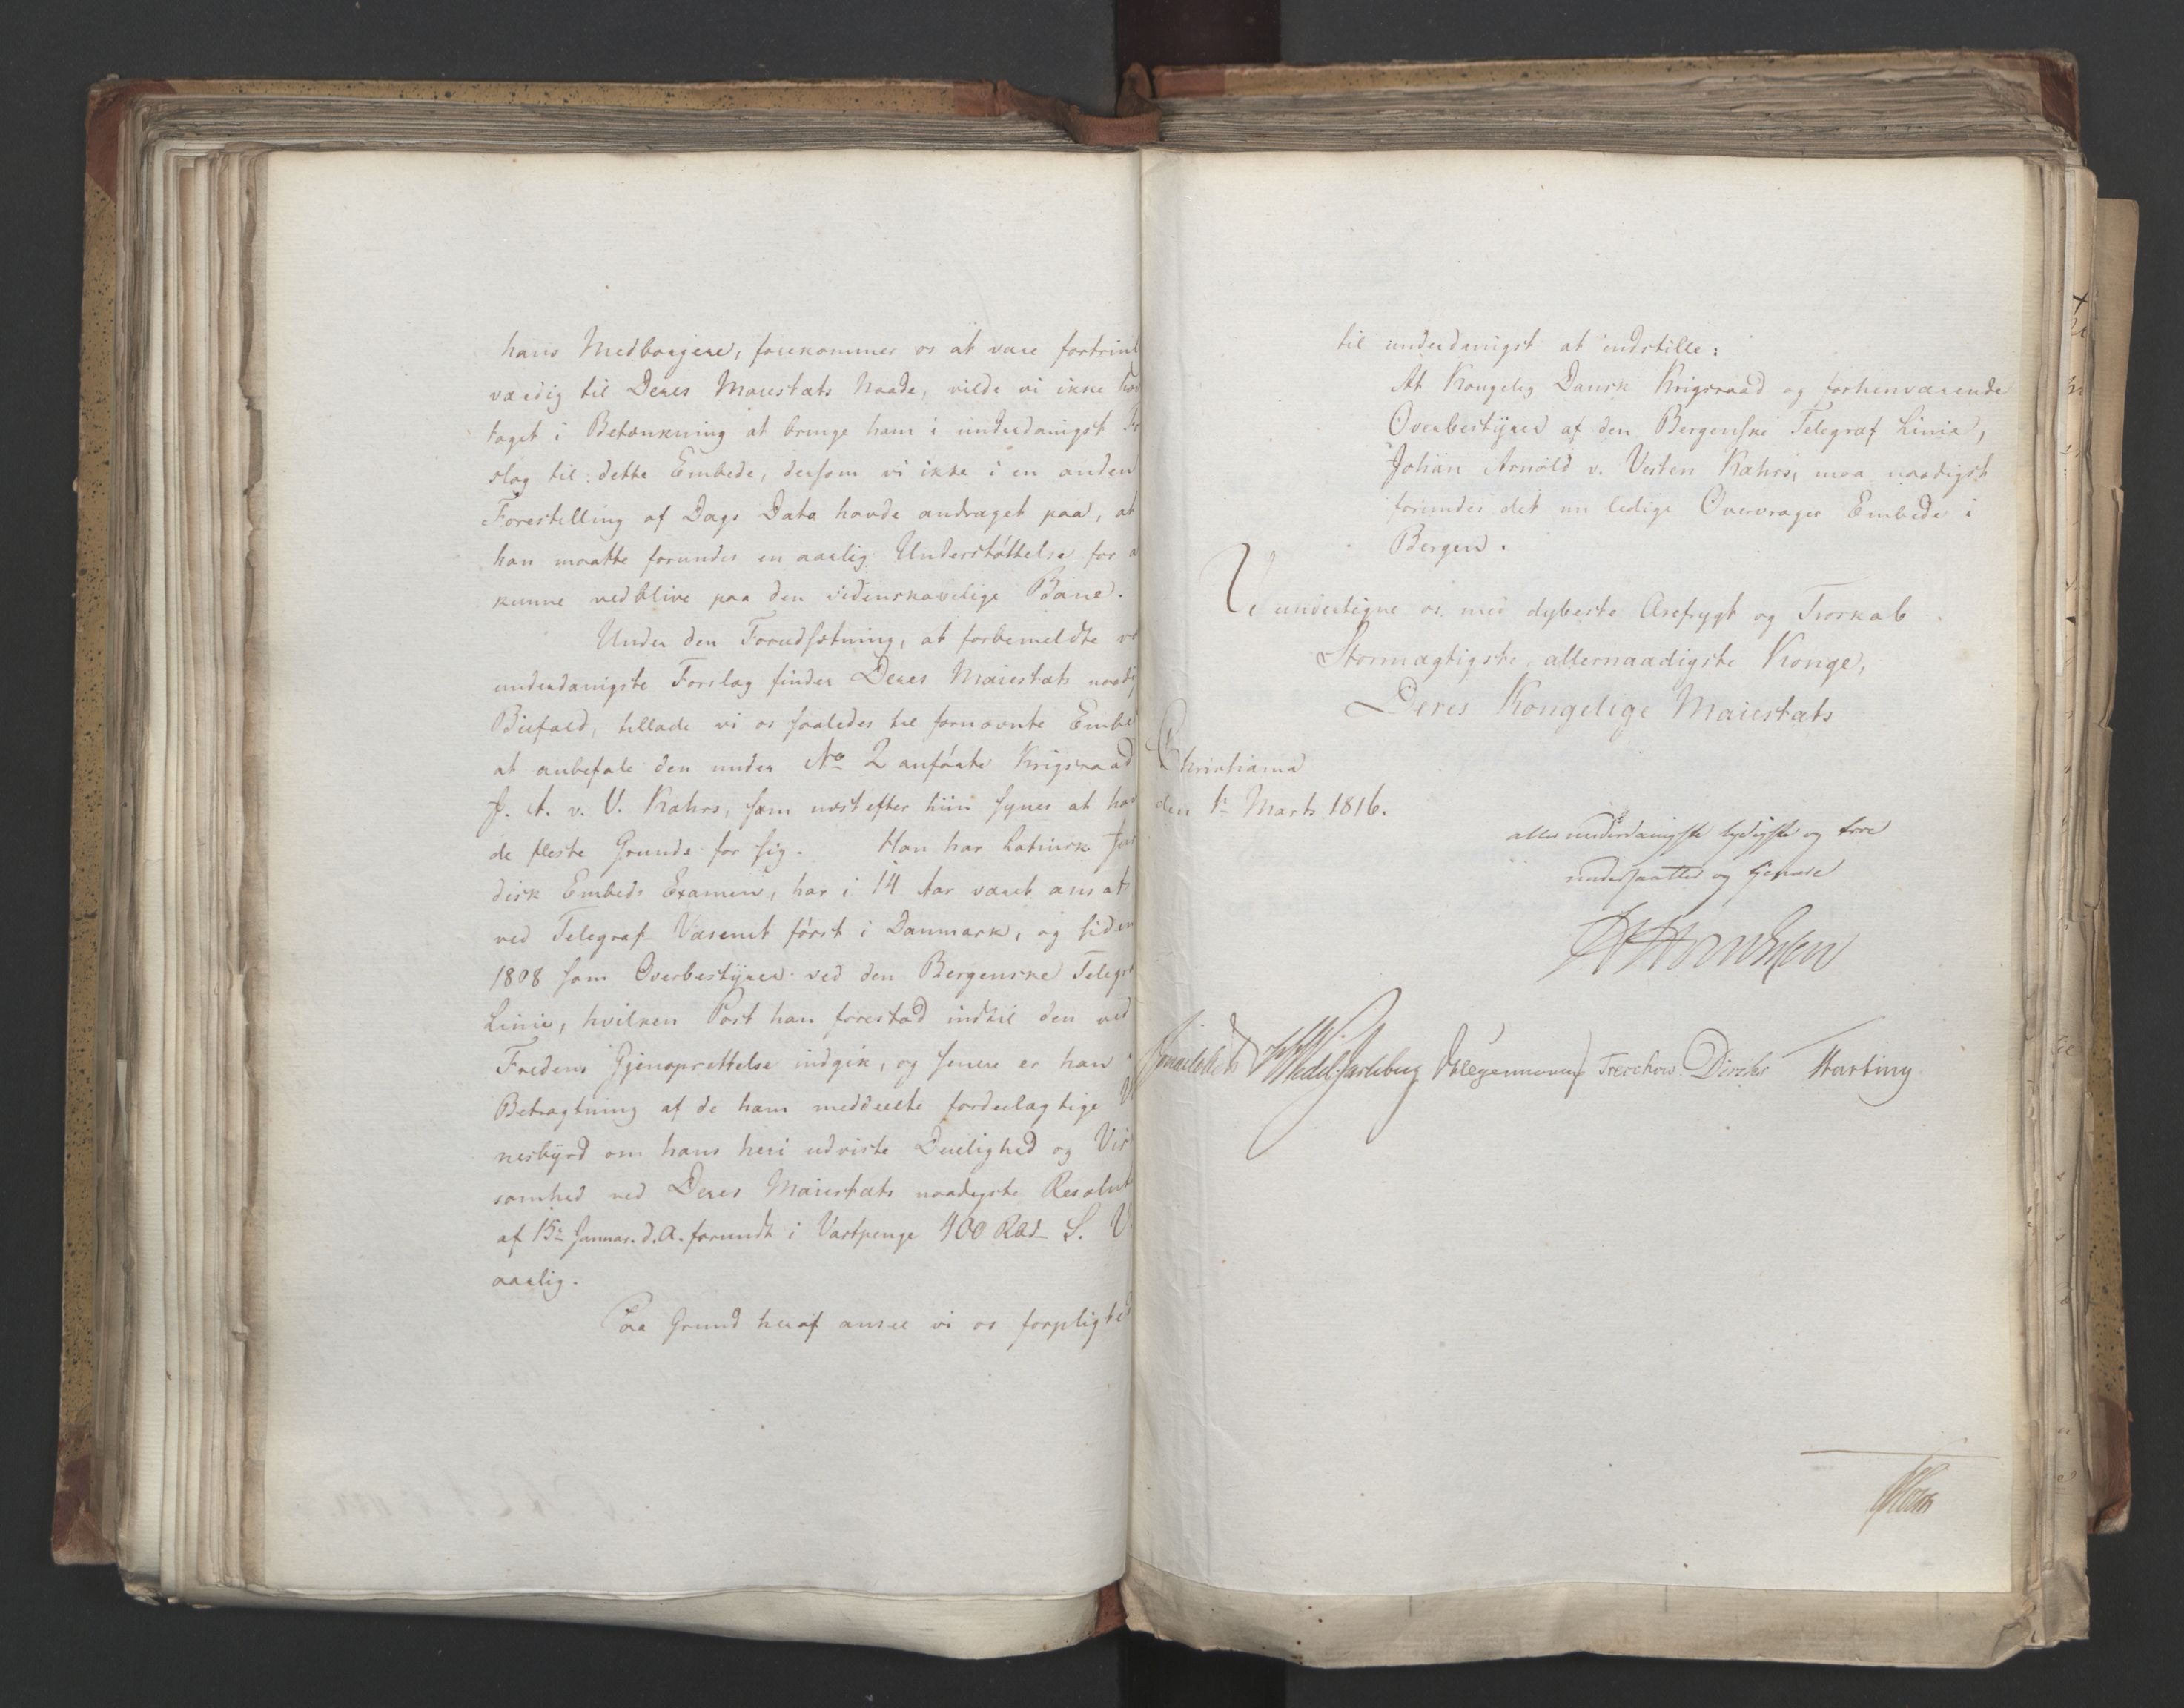 hans Medborgere, forekommer os at være fortrinl
værdig til Deres Maiestæts Naade, vilde vi ikke hav
taget i Betænkning at bringe ham i underdanigst Fo
slag til dette Embede, dersom vi ikke i en anden
Forestilling af Dags Dato havde andraget paa, at
han maatte forundes en aarlig Understøttelse for a
kunne vedblive paa den videnskabelige Bane.
Under den Forudsætning, at forbemeldte vo
underdanigste Forslag finder Deres Maiestæts naadig
Biefald, tillade vi os saaledes til fornævnte Embe
at anbefale den under No 2 anførte Krigsraad
J. A. v. V. Kahrs, som næst efter hiin synes at hav
de fleste Grunde for sig. Han har Latinsk Juri
disk Embeds Examen, har i 14 Aar været ansat
ved Telegraf-Væsenet først i Danmark, og siden
1808 som Overbestÿrer ved den Bergenske Telegr
Linie, hvilken Post han forestod indtil den ved
Fredens Gjenoprettelse indgik, og senere er han i
Betragtning af de ham meddeelte fordeelagtige Vi
nesbÿrd om hans heri udviste Duelighed og Virk
somhed ved Deres Maiestæts naadigste Resolut
af 15de Januar d. A. forundt i Vartpenge 400 Rbd S. V.
aarlig.
Paa Grund heraf ansee vi os forpligted
til underdanigst at indstille:
At Kongelig Dansk Krigsraad og forhenværende
Overbestÿrer af den Bergenske Telegraf Linie,
Johan Arnold v. Westen Kahrs, maa naadigst
forundes det nu ledige Overvrager Embede i
Bergen.
Vi undertegne os med dybeste Ærefrygt og Troskab
Stormægtigste, allernaadigste Konge,
Deres Kongelige Maiestæts
Christiania
den 1ste Marts 1816.
allerunderdanigste lydigste og troe
undersaatter og tjenere
Sommerhielm Wedel Jarlsberg Hegermann Treschow Diriks Motzfeldt